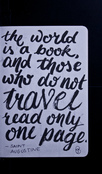 the world
is a book
and those
who do not
travel
read only
one page.
- SAINT
AUGUSTINE